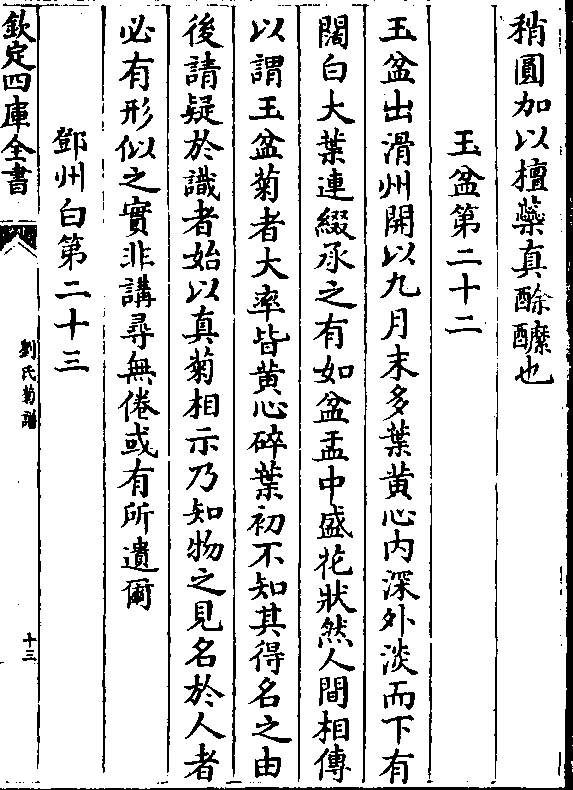 稍圓加以檀蘂真酴醿也
玉盆第二十二
玉盆出滑州開以九月末多葉黄心内深外淡而下有
闊白大葉連綴承之有如盆盂中盛花狀然人間相傳
以謂玉盆菊者大率皆黄心碎葉初不知其得名之由
後請疑於識者始以真菊相示乃知物之見名於人者
必有形似之實非講尋無倦或有所遺爾
鄧州白第二十三
欽定四庫全書
劉氏菊譜
十三